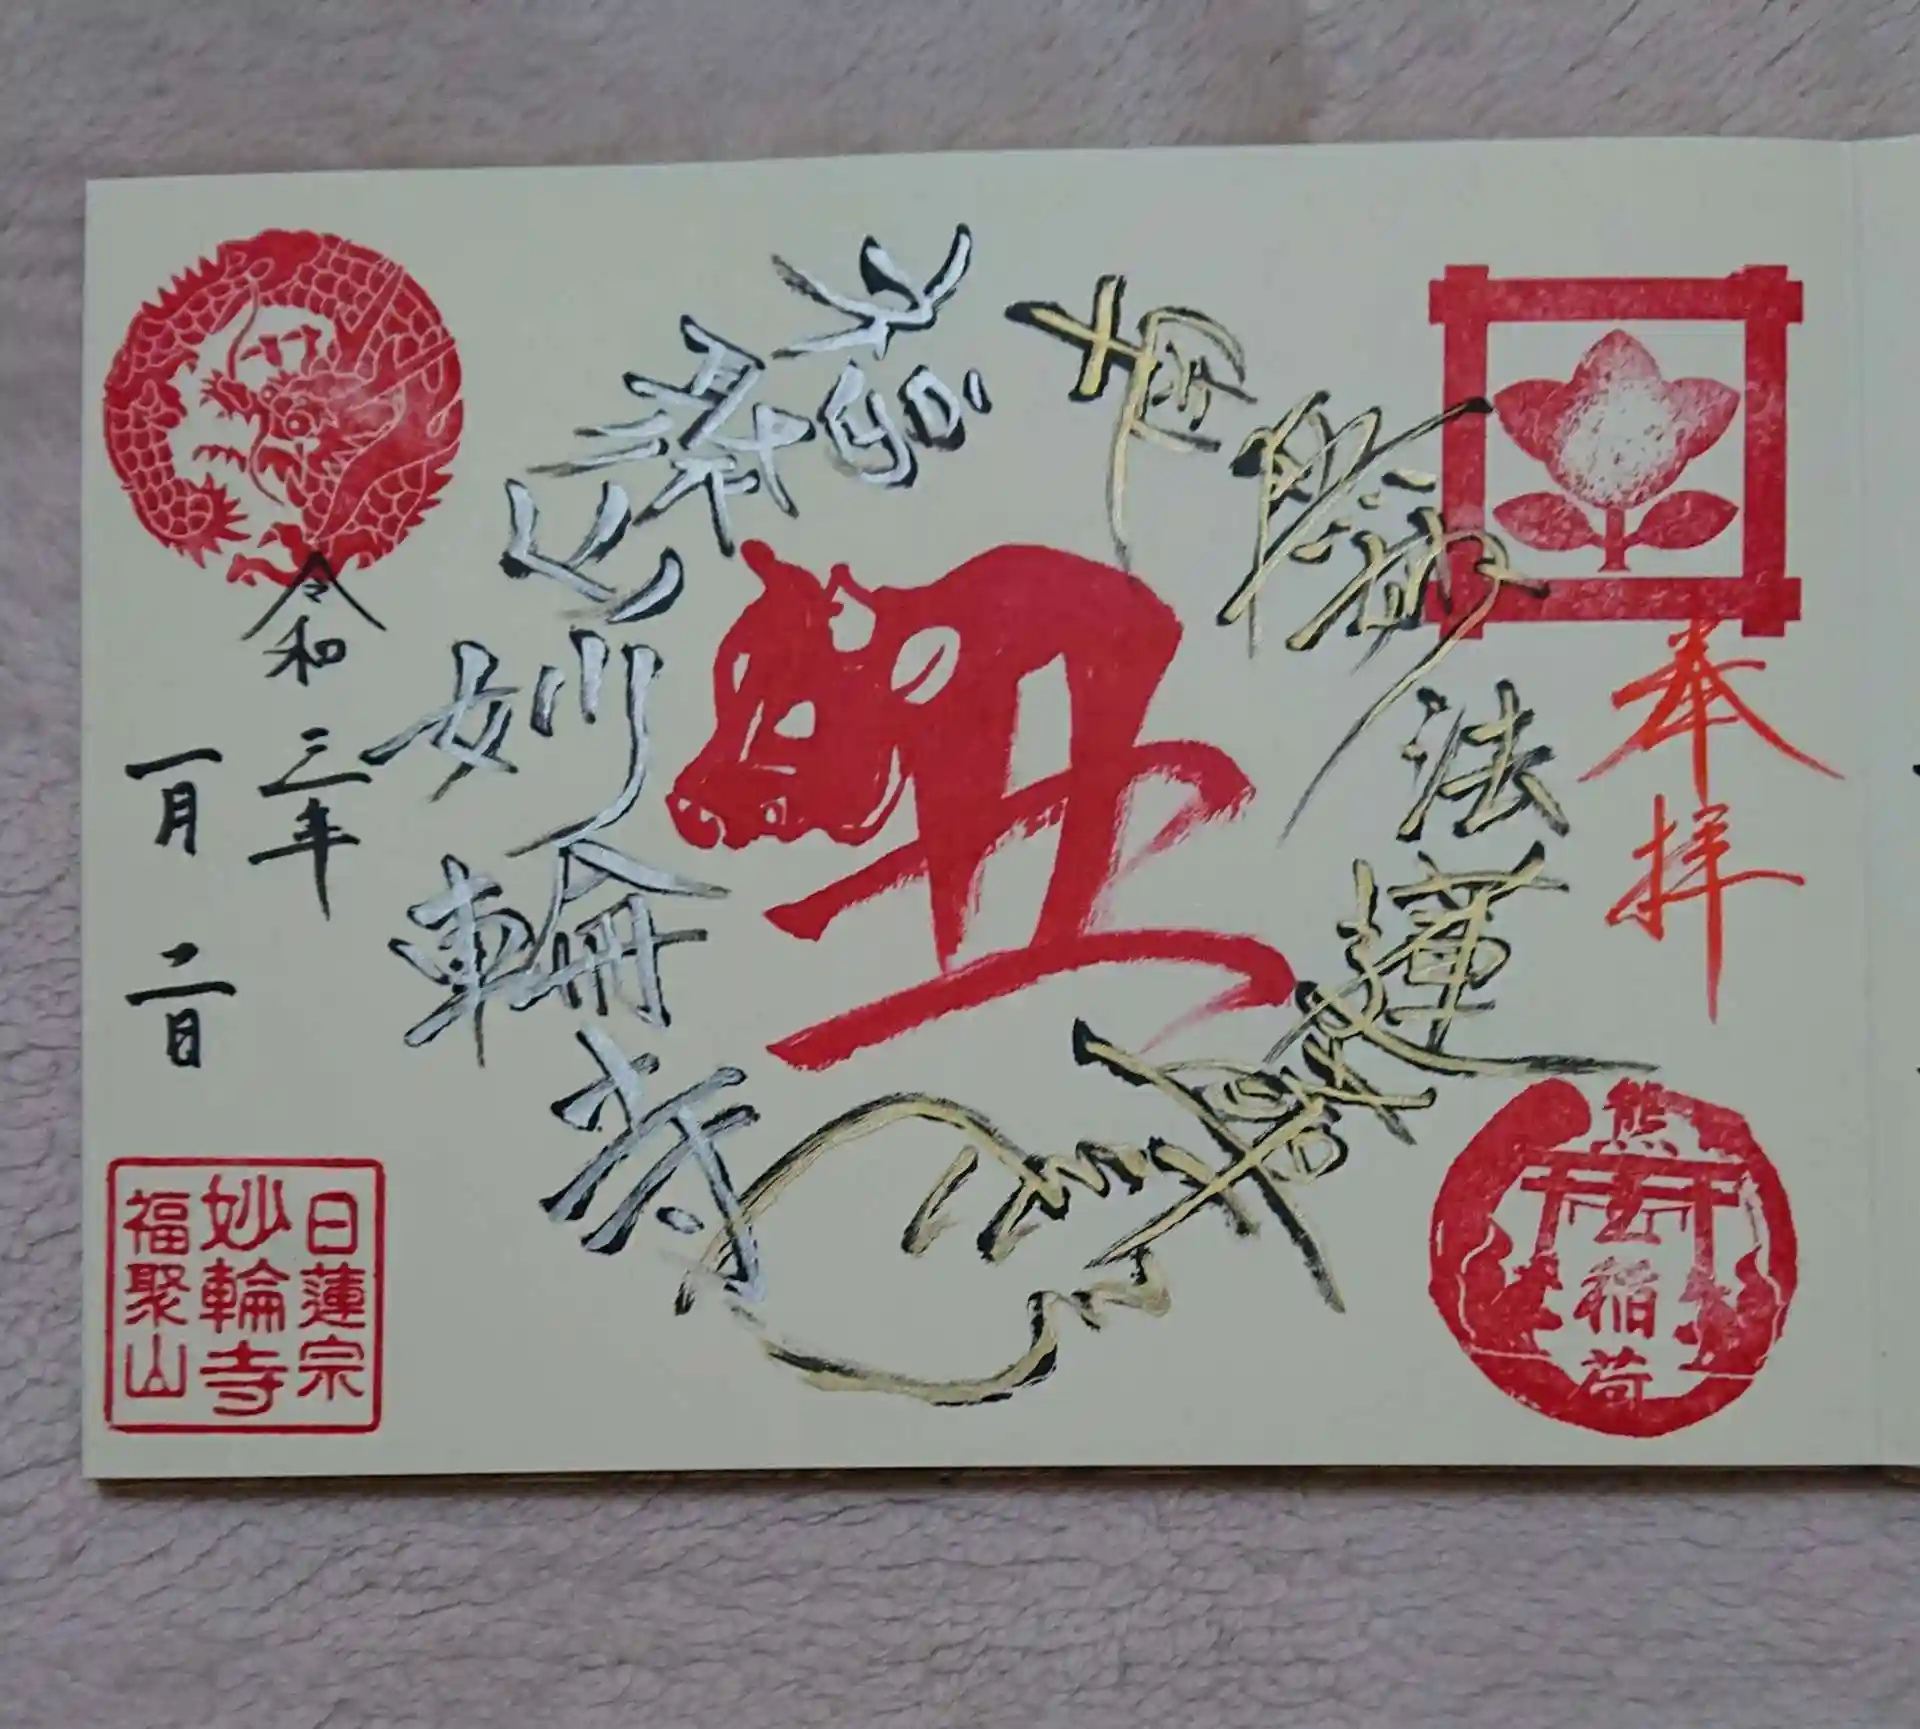 奉拝
南無妙法蓮華経
丑
福聚山
妙輪寺
令和三年
一月二日
日蓮宗
妙輪寺
福聚山
熊
稲荷